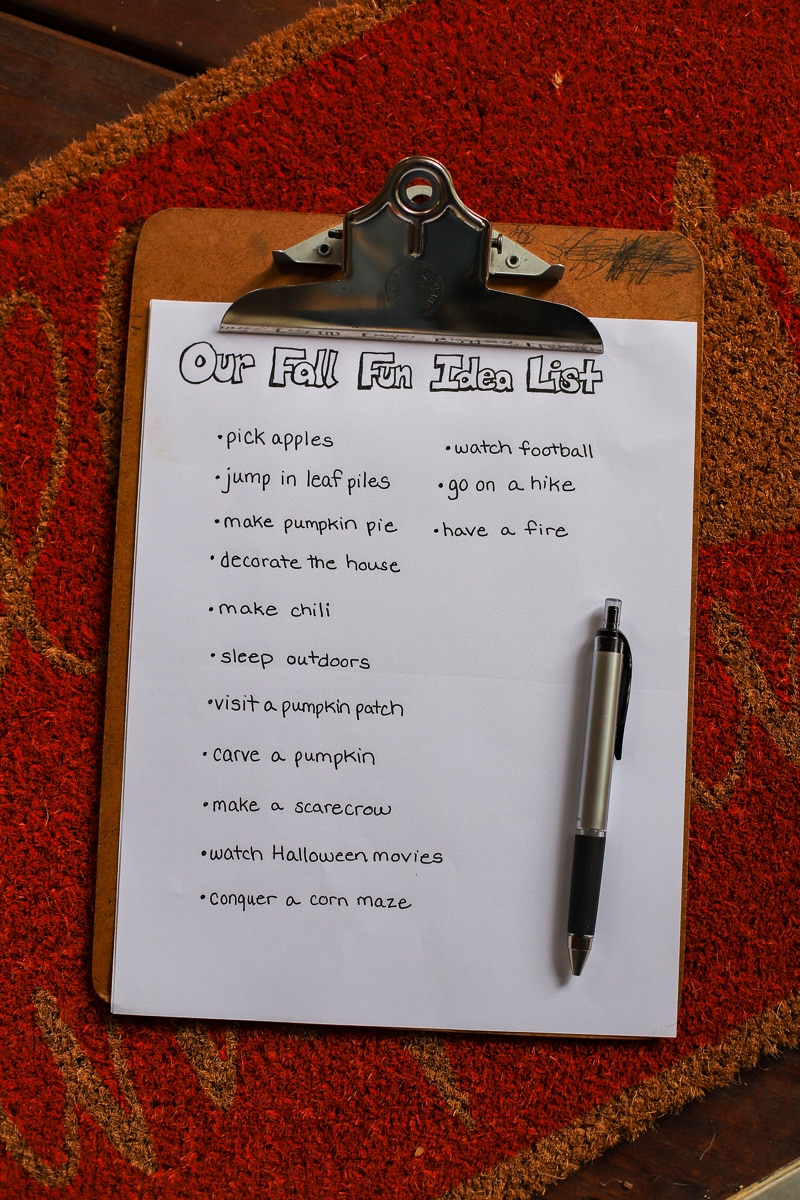 Our Fall Fun Idea List
•pick apples
•jump in leaf piles
•make pumpkin pie
•decorate the house
•make chili
•sleep outdoors
•visit a pumpkin patch
•carve a pumpkin
•make a scarecrow
•watch Halloween movies
•conquer a corn maze
•watch football
•go on a hike
•have a fire